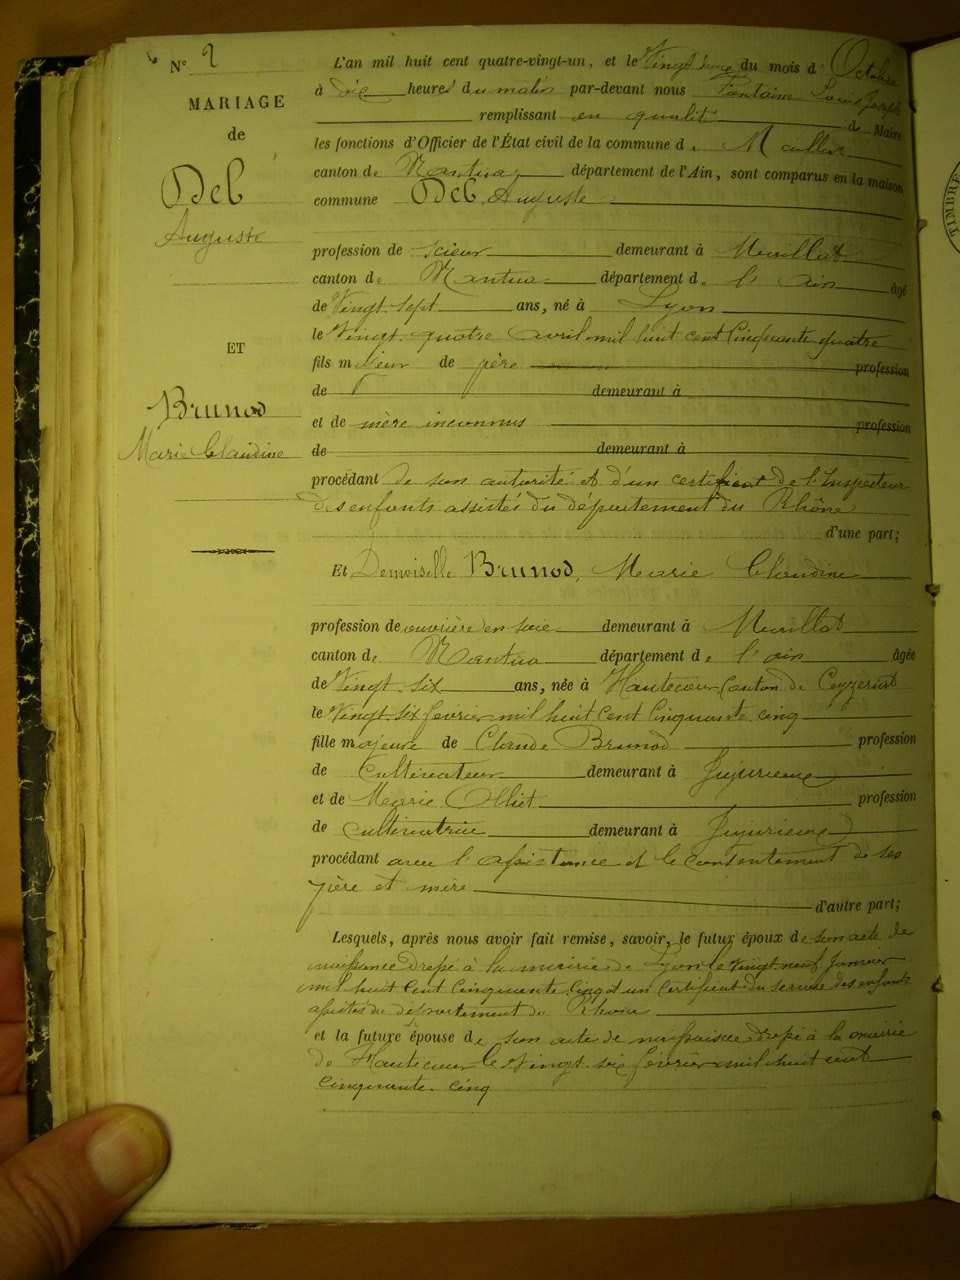 N° 2
MARIAGE
de
Deb
Auguste
ET
Brunod
Marie Claudine
L'an mil huit cent quatre-vingt-un, et le Vingt du mois d' Octobre
à dix heures du matin par-devant nous Fontaine Louis Joseph
remplissant en qualité de Maire
les fonctions d'Officier de l'État civil de la commune de Maillat
canton de Nantua, département de l'Ain, sont comparus en la maison
commune Deb Auguste
profession de scieur demeurant à Maillat
canton de Nantua département de l'ain âgé
de Vingt-sept ans, né à Lyon
le Vingt-quatre avril mil huit cent Cinquante quatre
fils mineur de père profession
de demeurant à
et de mère inconnus profession
de demeurant à
procédant de son autorité et d'un certificat de l'Inspecteur
des enfants assistés du département du Rhône
d'une part;
Et Demoiselle Brunod, Marie Claudine
profession de ouvrière en soie demeurant à Maillat
canton de Nantua département de l'ain âgée
de Vingt-six ans, née à Hautecour Canton de Ceyzeriat
le Vingt-six février mil huit cent Cinquante cinq
fille majeure de Claude Brunod profession
de Cultivateur demeurant à Jujurieux
et de Marie Olliet profession
de cultivatrice demeurant à Jujurieux
procédant avec l'assistance et le consentement de ses
père et mère
d'autre part;
Lesquels, après nous avoir fait remise, savoir, le futur époux de son acte de
naissance dressé à la mairie de Lyon le vingt-neuf Janvier
mil huit Cent Cinquante cinq et un Certificat du service des enfants
assistés du département du Rhône
et la future épouse de son acte de naissance dressé à la mairie
de Hautecour le Vingt-six février mil huit cent
cinquante-cinq
TIMBRE